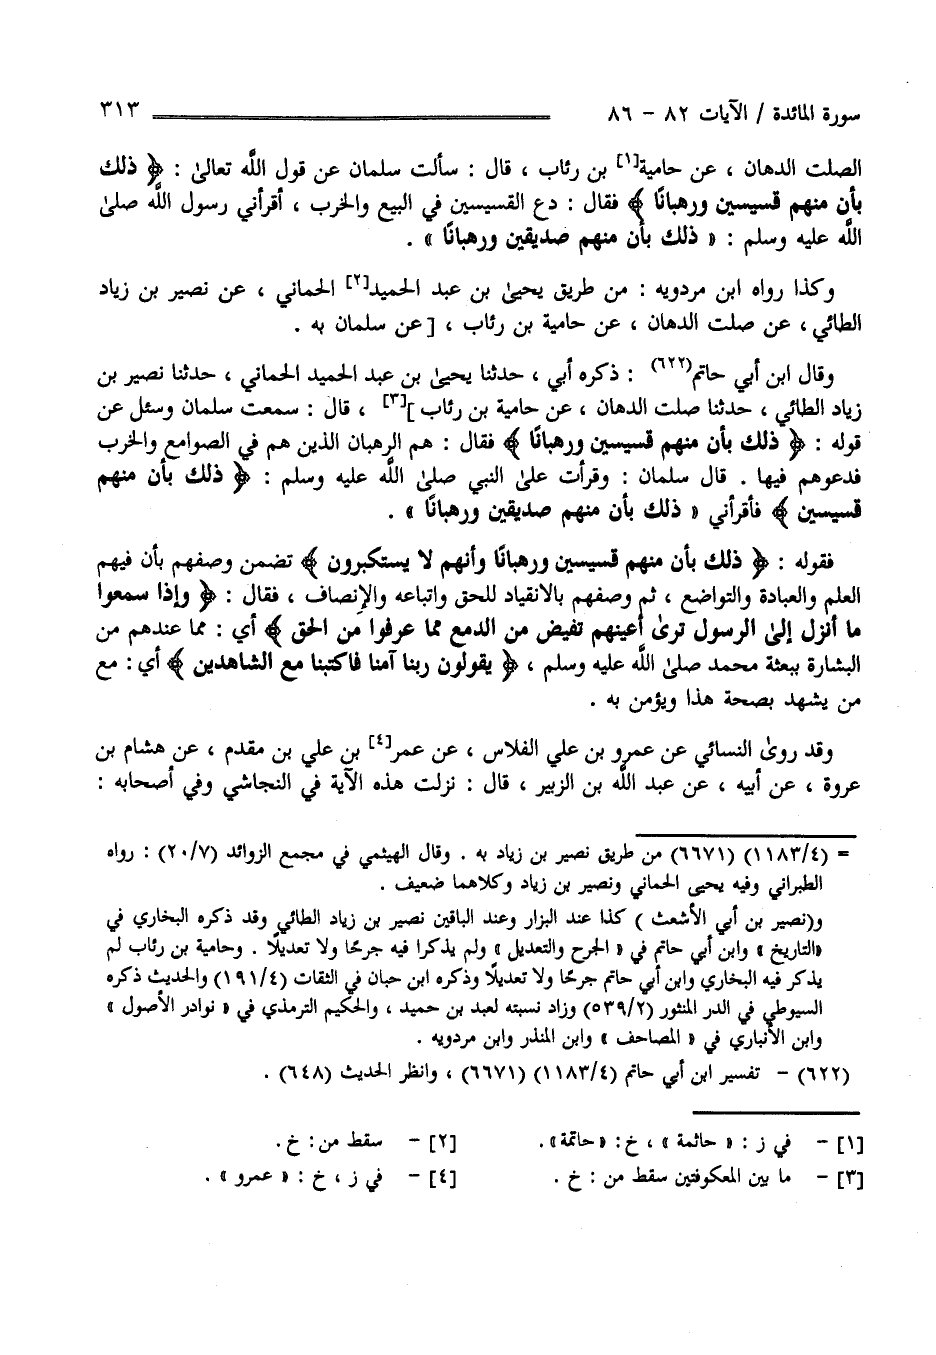 سورة المائدة / الآيات ٨٢ - ٨٦ ٣١٣
الصلت الدهان ، عن حامية[١] بن رئاب ، قال : سألت سلمان عن قول اللَّه تعالىٰ : ﴿ ذلك
بأن منهم قسيسين ورهبانًا ﴾ فقال : دع القسيسين في البيع والخرب ، أقرأني رسول اللَّه صلىٰ
اللَّه عليه وسلم : « ذلك بأن منهم صديقين ورهبانًا » .
وكذا رواه ابن مردويه : من طريق يحيىٰ بن عبد الحميد[٢] الحماني ، عن نصير بن زياد
الطائي ، عن صلت الدهان ، عن حامية بن رئاب ، [عن سلمان به .
وقال ابن أبي حاتم(٦٢٢) : ذكره أبي ، حدثنا يحيىٰ بن عبد الحميد الحماني ، حدثنا نصير بن
زياد الطائي ، حدثنا صلت الدهان ، عن حامية بن رئاب ][٣] ، قال : سمعت سلمان وسئل عن
قوله : ﴿ ذلك بأن منهم قسيسين ورهبانًا ﴾ فقال : هم الرهبان الذين هم في الصوامع والخرب
فدعوهم فيها . قال سلمان : وقرأت علىٰ النبي صلىٰ اللَّه عليه وسلم : ﴿ ذلك بأن منهم
قسيسين ﴾ فأقرأني « ذلك بأن منهم صديقين ورهبانًا » .
فقوله : ﴿ ذلك بأن منهم قسيسين ورهبانًا وأنهم لا يستكبرون ﴾ تضمن وصفهم بأن فيهم
العلم والعبادة والتواضع ، ثم وصفهم بالانقياد للحق واتباعه والإنصاف ، فقال : ﴿ وإذا سمعوا
ما أنزل إلىٰ الرسول ترىٰ أعينهم تفيض من الدمع مما عرفوا مِن الحق ﴾ أي : مما عندهم من
البشارة ببعثة محمد صلىٰ اللَّه عليه وسلم ، ﴿ يقولون ربنا آمنا فاكتبنا مع الشاهدين ﴾ أي : مع
من يشهد بصحة هذا ويؤمن به .
وقد روىٰ النسائي عن عمرو بن علي الفلاس ، عن عمر[٤] بن علي بن مقدم ، عن هشام بن
عروة ، عن أبيه ، عن عبد اللَّه بن الزبير ، قال : نزلت هذه الآية في النجاشي وفي أصحابه :
= (١١٨٣/٤) (٦٦٧١) من طريق نصير بن زياد به . وقال الهيثمي في مجمع الزوائد (٢٠/٧) : رواه
الطبراني وفيه يحيى الحماني ونصير بن زياد وكلاهما ضعيف .
و(نصير بن أبي الأشعث ) كذا عند البزار وعند الباقين نصير بن زياد الطائي وقد ذكره البخاري في
«التاريخ » وابن أبي حاتم في « الجرح والتعديل » ولم يذكرا فيه جرحًا ولا تعديلًا . وحامية بن رئاب لم
يذكر فيه البخاري وابن أبي حاتم جرحًا ولا تعديلًا وذكره ابن حبان في الثقات (١٩١/٤) والحديث ذكره
السيوطي في الدر المنثور (٥٣٩/٢) وزاد نسبته لعبد بن حميد ، والحكيم الترمذي في « نوادر الأصول »
وابن الأنباري في « المصاحف » وابن المنذر وابن مردويه .
(٦٢٢) - تفسير ابن أبي حاتم (١١٨٣/٤) (٦٦٧١) ، وانظر الحديث (٦٤٨) .
[١] - في ز : « حاثمة » ، خ : «حاتمة». [٢] - سقط من : خ .
[٣] - ما بين المعكوفتين سقط من : خ . [٤] - في ز ، خ : « عمرو » .